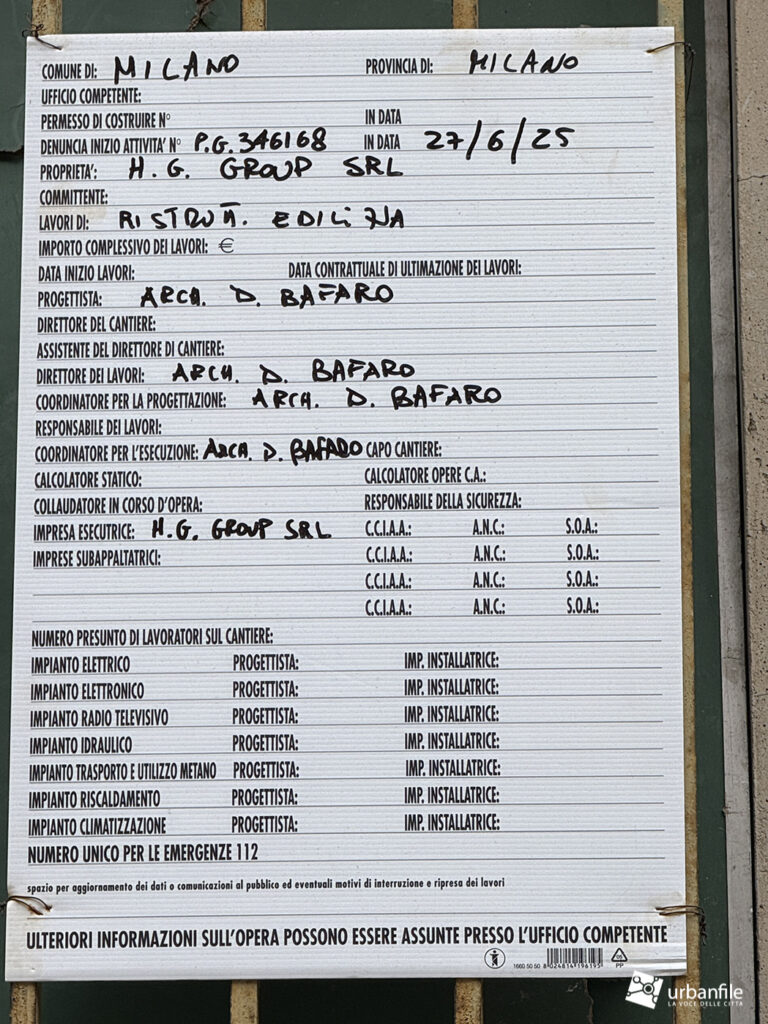 COMUNE DI: MILANO PROVINCIA DI: MILANO
UFFICIO COMPETENTE:
PERMESSO DI COSTRUIRE N° IN DATA
DENUNCIA INIZIO ATTIVITA' N° P.G. 346168 IN DATA 27/6/25
PROPRIETA': H.G. GROUP SRL
COMMITTENTE:
LAVORI DI: RISTRUTT. EDILIZIA
IMPORTO COMPLESSIVO DEI LAVORI: €
DATA INIZIO LAVORI: DATA CONTRATTUALE DI ULTIMAZIONE DEI LAVORI:
PROGETTISTA: ARCH. D. BAFARO
DIRETTORE DEL CANTIERE:
ASSISTENTE DEL DIRETTORE DI CANTIERE:
DIRETTORE DEI LAVORI: ARCH. D. BAFARO
COORDINATORE PER LA PROGETTAZIONE: ARCH. D. BAFARO
RESPONSABILE DEI LAVORI:
COORDINATORE PER L'ESECUZIONE: ARCH. D. BAFARO CAPO CANTIERE:
CALCOLATORE STATICO: CALCOLATORE OPERE C.A.:
COLLAUDATORE IN CORSO D'OPERA: RESPONSABILE DELLA SICUREZZA:
IMPRESA ESECUTRICE: H.G. GROUP SRL C.C.I.A.A.: A.N.C.: S.O.A.:
IMPRESE SUBAPPALTATRICI: C.C.I.A.A.: A.N.C.: S.O.A.:
C.C.I.A.A.: A.N.C.: S.O.A.:
C.C.I.A.A.: A.N.C.: S.O.A.:
NUMERO PRESUNTO DI LAVORATORI SUL CANTIERE:
IMPIANTO ELETTRICO PROGETTISTA: IMP. INSTALLATRICE:
IMPIANTO ELETTRONICO PROGETTISTA: IMP. INSTALLATRICE:
IMPIANTO RADIO TELEVISIVO PROGETTISTA: IMP. INSTALLATRICE:
IMPIANTO IDRAULICO PROGETTISTA: IMP. INSTALLATRICE:
IMPIANTO TRASPORTO E UTILIZZO METANO PROGETTISTA: IMP. INSTALLATRICE:
IMPIANTO RISCALDAMENTO PROGETTISTA: IMP. INSTALLATRICE:
IMPIANTO CLIMATIZZAZIONE PROGETTISTA: IMP. INSTALLATRICE:
NUMERO UNICO PER LE EMERGENZE 112
spazio per aggiornamento dei dati o comunicazioni al pubblico ed eventuali motivi di interruzione e ripresa dei lavori
ULTERIORI INFORMAZIONI SULL'OPERA POSSONO ESSERE ASSUNTE PRESSO L'UFFICIO COMPETENTE
1660 50 50 8 024814 196195 05 PP
urbanfile
LA VOCE DELLE CITTÀ